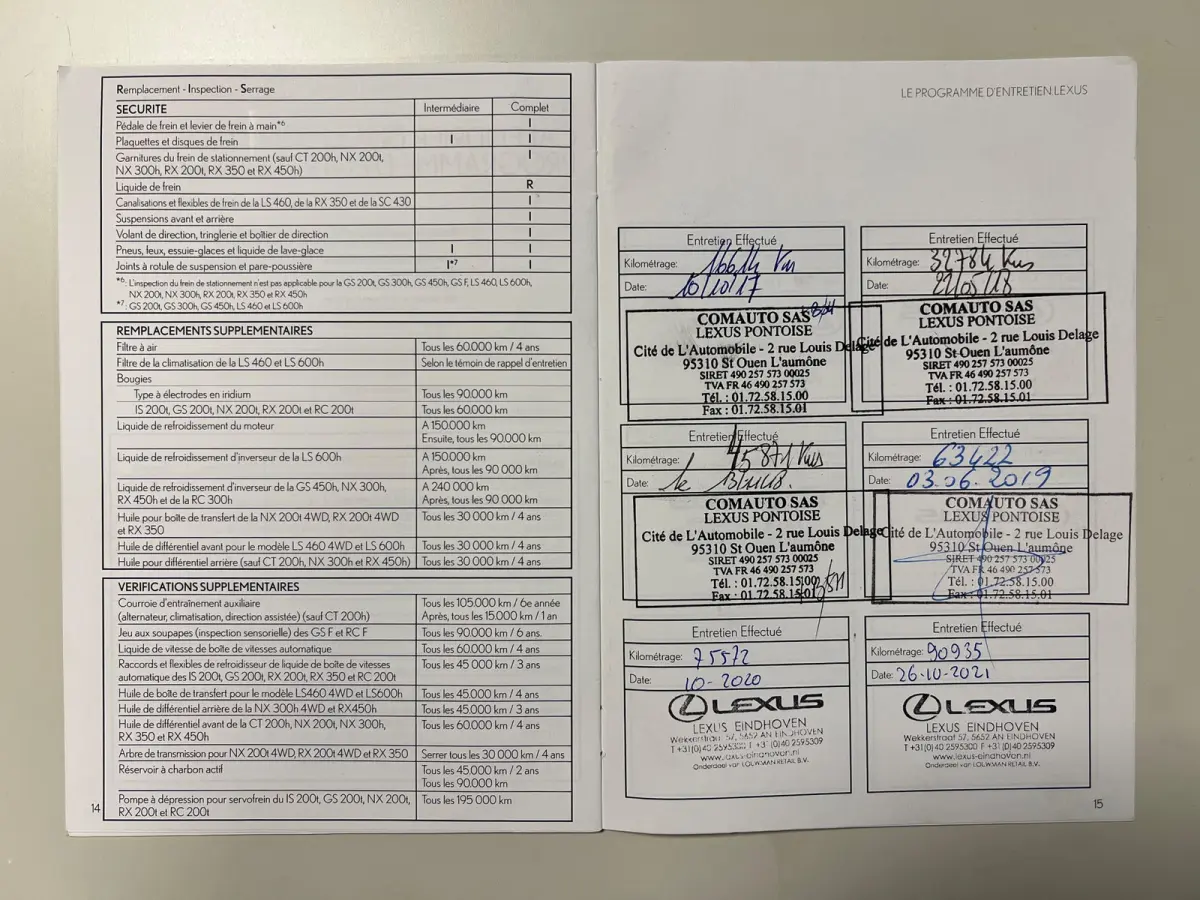 Remplacement - Inspection - Serrage
SECURITE Intermédiaire Complet
Pédale de frein et levier de frein à main*6 I
Plaquettes et disques de frein I I
Garnitures du frein de stationnement (sauf CT 200h, NX 200t, I
NX 300h, RX 200t, RX 350 et RX 450h)
Liquide de frein R
Canalisations et flexibles de frein de la LS 460, de la RX 350 et de la SC 430 I
Suspensions avant et arrière I
Volant de direction, tringlerie et boîtier de direction I
Pneus, feux, essuie-glaces et liquide de lave-glace I I
Joints à rotule de suspension et pare-poussière I*7 I
*6: L'inspection du frein de stationnement n'est pas applicable pour la GS 200t, GS 300h, GS 450h, GS F, LS 460, LS 600h,
NX 200t, NX 300h, RX 200t, RX 350 et RX 450h
*7 : GS 200t, GS 300h, GS 450h, LS 460 et LS 600h
REMPLACEMENTS SUPPLEMENTAIRES
Filtre à air Tous les 60.000 km / 4 ans
Filtre de la climatisation de la LS 460 et LS 600h Selon le témoin de rappel d'entretien
Bougies
Type à électrodes en iridium Tous les 90.000 km
IS 200t, GS 200t, NX 200t, RX 200t et RC 200t Tous les 60.000 km
Liquide de refroidissement du moteur A 150.000 km
Ensuite, tous les 90.000 km
Liquide de refroidissement d'inverseur de la LS 600h A 150.000 km
Après, tous les 90 000 km
Liquide de refroidissement d'inverseur de la GS 450h, NX 300h, A 240 000 km
RX 450h et de la RC 300h Après, tous les 90 000 km
Huile pour boîte de transfert de la NX 200t 4WD, RX 200t 4WD Tous les 30 000 km / 4 ans
et RX 350
Huile de différentiel avant pour le modèle LS 460 4WD et LS 600h Tous les 30 000 km / 4 ans
Huile pour différentiel arrière (sauf CT 200h, NX 300h et RX 450h) Tous les 30 000 km / 4 ans
VERIFICATIONS SUPPLEMENTAIRES
Courroie d'entraînement auxiliaire Tous les 105.000 km / 6e année
(alternateur, climatisation, direction assistée) (sauf CT 200h) Après, tous les 15.000 km / 1 an
Jeu aux soupapes (inspection sensorielle) des GS F et RC F Tous les 90.000 km / 6 ans.
Liquide de vitesse de boîte de vitesses automatique Tous les 60.000 km / 4 ans
Raccords et flexibles de refroidisseur de liquide de boîte de vitesses Tous les 45 000 km / 3 ans
automatique des IS 200t, GS 200t, RX 200t, RX 350 et RC 200t
Huile de boîte de transfert pour le modèle LS460 4WD et LS600h Tous les 45.000 km / 4 ans
Huile de différentiel arrière de la NX 300h 4WD et RX450h Tous les 45.000 km / 3 ans
Huile de différentiel avant de la CT 200h, NX 200t, NX 300h, Tous les 60.000 km / 4 ans
RX 350 et RX 450h
Arbre de transmission pour NX 200t 4WD, RX 200t 4WD et RX 350 Serrer tous les 30 000 km / 4 ans
Réservoir à charbon actif Tous les 45.000 km / 2 ans
Tous les 90.000 km
Pompe à dépression pour servofrein du IS 200t, GS 200t, NX 200t, Tous les 195 000 km
RX 200t et RC 200t
14
LE PROGRAMME D'ENTRETIEN LEXUS
Entretien Effectué
Kilométrage: 16614 Km
Date: 10/10/17
COMAUTO SAS
LEXUS PONTOISE
Cité de L'Automobile - 2 rue Louis Delage
95310 St Ouen L'aumône
SIRET 490 257 573 00025
TVA FR 46 490 257 573
Tél. : 01.72.58.15.00
Fax : 01.72.58.15.01
Entretien Effectué
Kilométrage: 32784 Kms
Date: 22/05/18
COMAUTO SAS
LEXUS PONTOISE
Cité de L'Automobile - 2 rue Louis Delage
95310 St Ouen L'aumône
SIRET 490 257 573 00025
TVA FR 46 490 257 573
Tél. : 01.72.58.15.00
Fax : 01.72.58.15.01
Entretien Effectué
Kilométrage: 45871 Kms
Date: le
COMAUTO SAS
LEXUS PONTOISE
Cité de L'Automobile - 2 rue Louis Delage
95310 St Ouen L'aumône
SIRET 490 257 573 00025
TVA FR 46 490 257 573
Tél. : 01.72.58.15.00
Fax : 01.72.58.15.01
Entretien Effectué
Kilométrage: 63422
Date: 03.06.2019
COMAUTO SAS
LEXUS PONTOISE
Cité de L'Automobile - 2 rue Louis Delage
95310 St Ouen L'aumône
SIRET 490 257 573 00025
TVA FR 46 490 257 573
Tél. : 01.72.58.15.00
Fax : 01.72.58.15.01
Entretien Effectué
Kilométrage: 75572
Date: 10-2020
LEXUS
LEXUS EINDHOVEN
Wekkerstraat 57, 5652 AN EINDHOVEN
T +31(0)40 2595300 F +31 (0)40 2595309
www.lexus-eindhoven.nl
Onderdeel van LOUWMAN RETAIL B.V.
Entretien Effectué
Kilométrage: 90935
Date: 26-10-2021
LEXUS
LEXUS EINDHOVEN
Wekkerstraat 57, 5652 AN EINDHOVEN
T +31(0)40 2595300 F +31 (0)40 2595309
www.lexus-eindhoven.nl
Onderdeel van LOUWMAN RETAIL B.V.
15